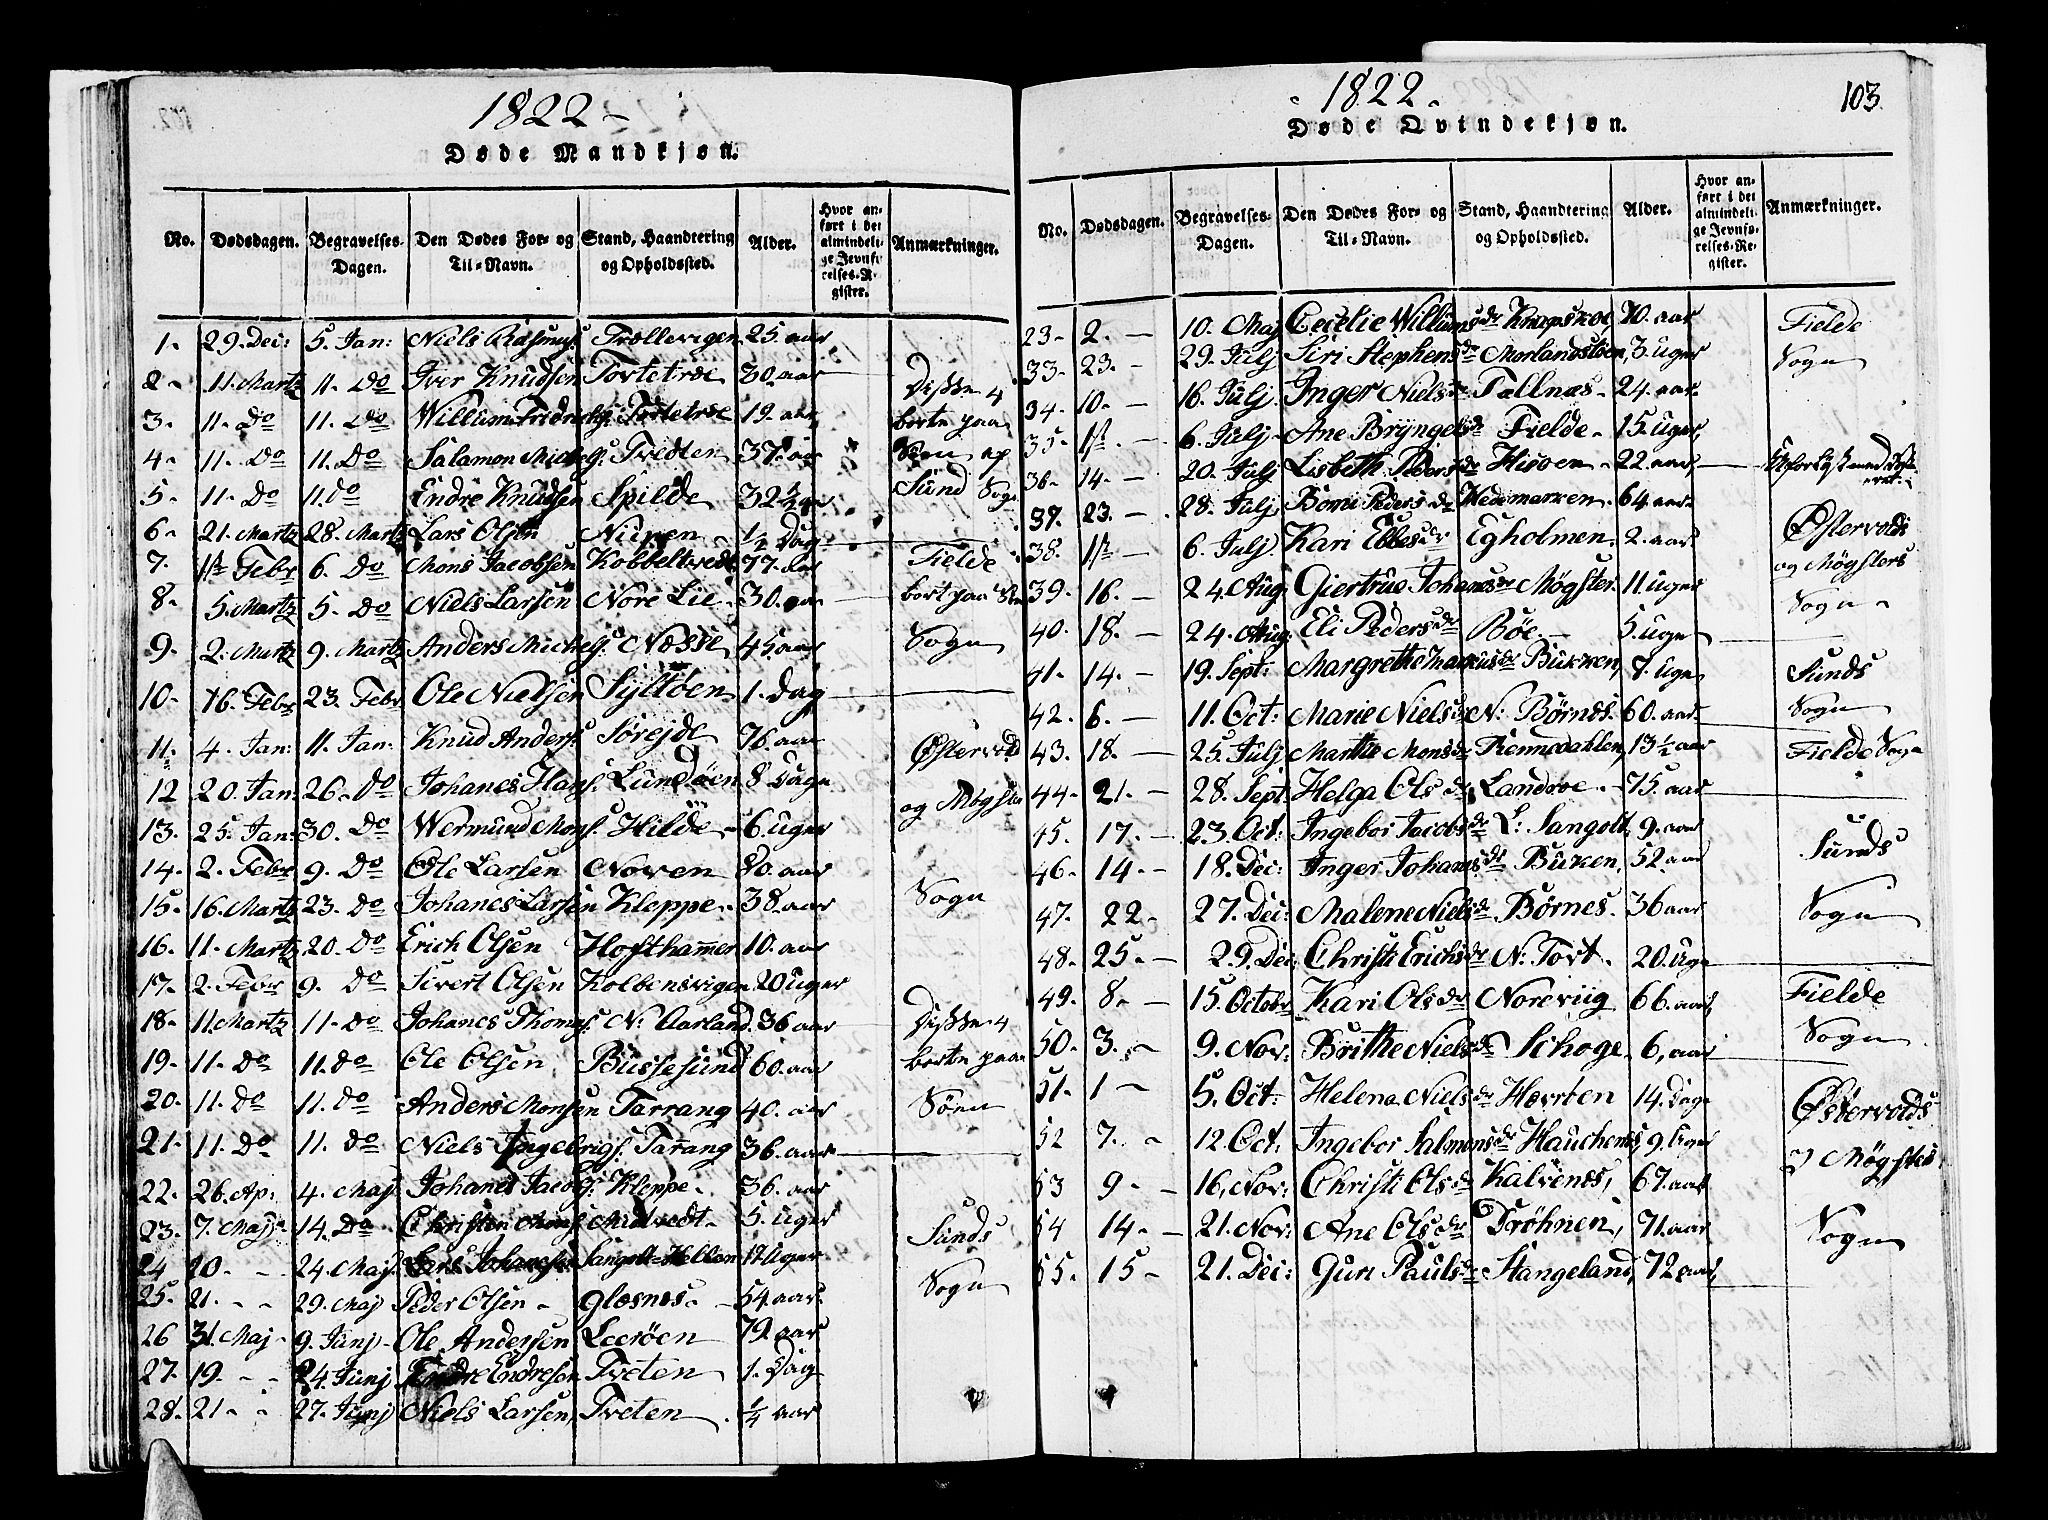 1822
Døde Mandkjøn.
No. Dødsdagen. Begravelses-Dagen. Den Dødes For- og Til-Navn. Stand, Haandtering og Opholdssted. Alder. Hvor anført i det almindelige Jevnførelses-Register. Anmærkninger.
1. 29. Dec: 5. Jan: Niels Trællevigen 25 aar
2. 11. Martz 11. Do Iver Knudsen Tortetræ 30. aar
3. 11. Do 11. Do Willum Fridrichs: Tortetræ 19. aar
4. 11. Do 11. Do Salamon Michels: Tvedten 37. aar
5. 11. Do 11. Do Endre Knudsen Spilde 32 1/2 aar Sund Sogn
6. 21. Martz 28. Martz Lars Olsen 1/2 Dag
7. 1ste Febr 6. Do Mons Jacobsen Kobbeltvedt 77. aar Fielde
8. 5. Martz 5. Do Niels Larsen Nore Lie 30. aar bort paa Søen
9. 2. Martz 9. Martz Anders Michels: Næsse 45. aar Sogn
10. 16. Febr 23. Febr Ole Nielsen Syltøen 1. Dag
11. 4. Jan: 11. Jan: Knud Anders: Sørejde 76. aar Østervold
12 20. Jan: 26. Do Johanes Hans: Lundøen 8 Dage og Møgster
13. 25. Jan: 30. Do Wermund Mons: Hilde 6. Uger
14. 2. Febr 9. Do Ole Larsen Noven 80. aar Sogn
15. 16. Martz 23. Do Johanes Larsen Kleppe 38. aar
16. 11. Martz 20. Do Erich Olsen Hofthammer 10. aar
17. 2. Febr 9. Do Sivert Olsen Kolbensvigen 20 Uger
18. 11. Martz 11. Do Johanes Thomas: N: Aarland 36 aar Disse 4
19. 11. Do 11. Do Ole Olsen Bussesund 60. aar borte paa
20. 11. Do 11. Do Anders Monsen Tarrang 40. aar Søen
21. 11. Do 11. Do Niels Ingebrigs: Tarrang 36. aar
22. 26. Ap: 4. Maj Johanes Jacobs: Kleppe 36. aar
23. 7. Maj 14. Do Christen Mons: Midtvedt 5. Uger Sunds
24 20. - 24. Maj Lars Johannesen Sangolt-Hellen Uger
25. 21. - 29. Maj Peder Olsen Glæsnes 54. aar Sogn
26 31. Maj 9. Junj Ole Andersen Leerøen 79. aar
27. 19. - 24. Junj Endre Endresen Tveten 1. Dag
28. 21 - 27. Junj Niels Larsen, Tveten 1/4 aar
1822. 103.
Døde Qvindekjøn.
No. Dødsdagen. Begravelses-Dagen. Den Dødes For- og Til-Navn. Stand, Haandtering og Opholdssted. Alder. Hvor anført i det almindelige Jevnførelses-Register. Anmærkninger.
23. 2. - 10. Maj Cecelie Willumsdr 70. aar Fielde
33. 23. - 29. Julj Siri Stephensdr Morlandstøen, 3. Uger Sogn
34. 10. - 16. Julj Inger Nielsdr Tallnæs 24. aar
35. 1ste - 6. Julj Ane Bryngelsdr Fielde 15. Uger,
36. 14. - 20. Julj Lisbeth Pedersdr Hisøen 22. aar,
37. 23. - 28. Julj Pedersdr Hedemarken 64. aar
38. 1ste - 6. Julj Kari Ebbesdr Egholmen. 2. aar Østervolds
39. 16. - 24. Aug: Giertrue Johanesdr Møgster 11. Uger og Møgsters
40. 18. - 24. Aug: Eli Pedersdr Bøe 5. Uger Sogn
41. 14. - 19. Sept: Margrethe Markusdr Bukken, 7. Uger Sunds
42. 6. - 11. Oct: Marie Nielsdr N: Børnes. 60. aar Sogn
43. 18. - 25. Julj Marthe Monsdr Rennedahlen, 13 1/2 aar Fielde Sogn
44. 21. - 28. Sept: Helga Olsdr Landroe 75. aar
45. 17. - 23. Oct: Ingebor Jacobsdr L: Sangolt, 9. aar Sunds
46. 14. - 18. Dec: Inger Johansdr Buken, 52. aar
47. 22. 27. Dec: Malene Nielsdr Børnes. 36 aar Sogn
48. 25. - 29. Dec: Christi Erichsdr N: Tort. 20. Uger
49. 8. - 15. Octobr Kari Olsdr Noreviig 66. aar, Fielde
50. 3. - 9. Nov: Brithe Nielsdr Schoge 6, aar Sogn
51. 1 - 5. Oct: Helena Nielsdr Hevrten 14. Dage Østervolds
52 7. - 12. Oct: Ingebor Salmonsdr Hauchenes, 9. Uger og Møgsters
53 9 - 16, Nov: Christi Olsdr Kalvenes, 67. aar
54 14 - 21. Nov: Ane Olsdr Drøhnen, 71. aar Sogn
55. 15 - 21. Dec: Guri Paulsdr Stangeland, 72 aar,